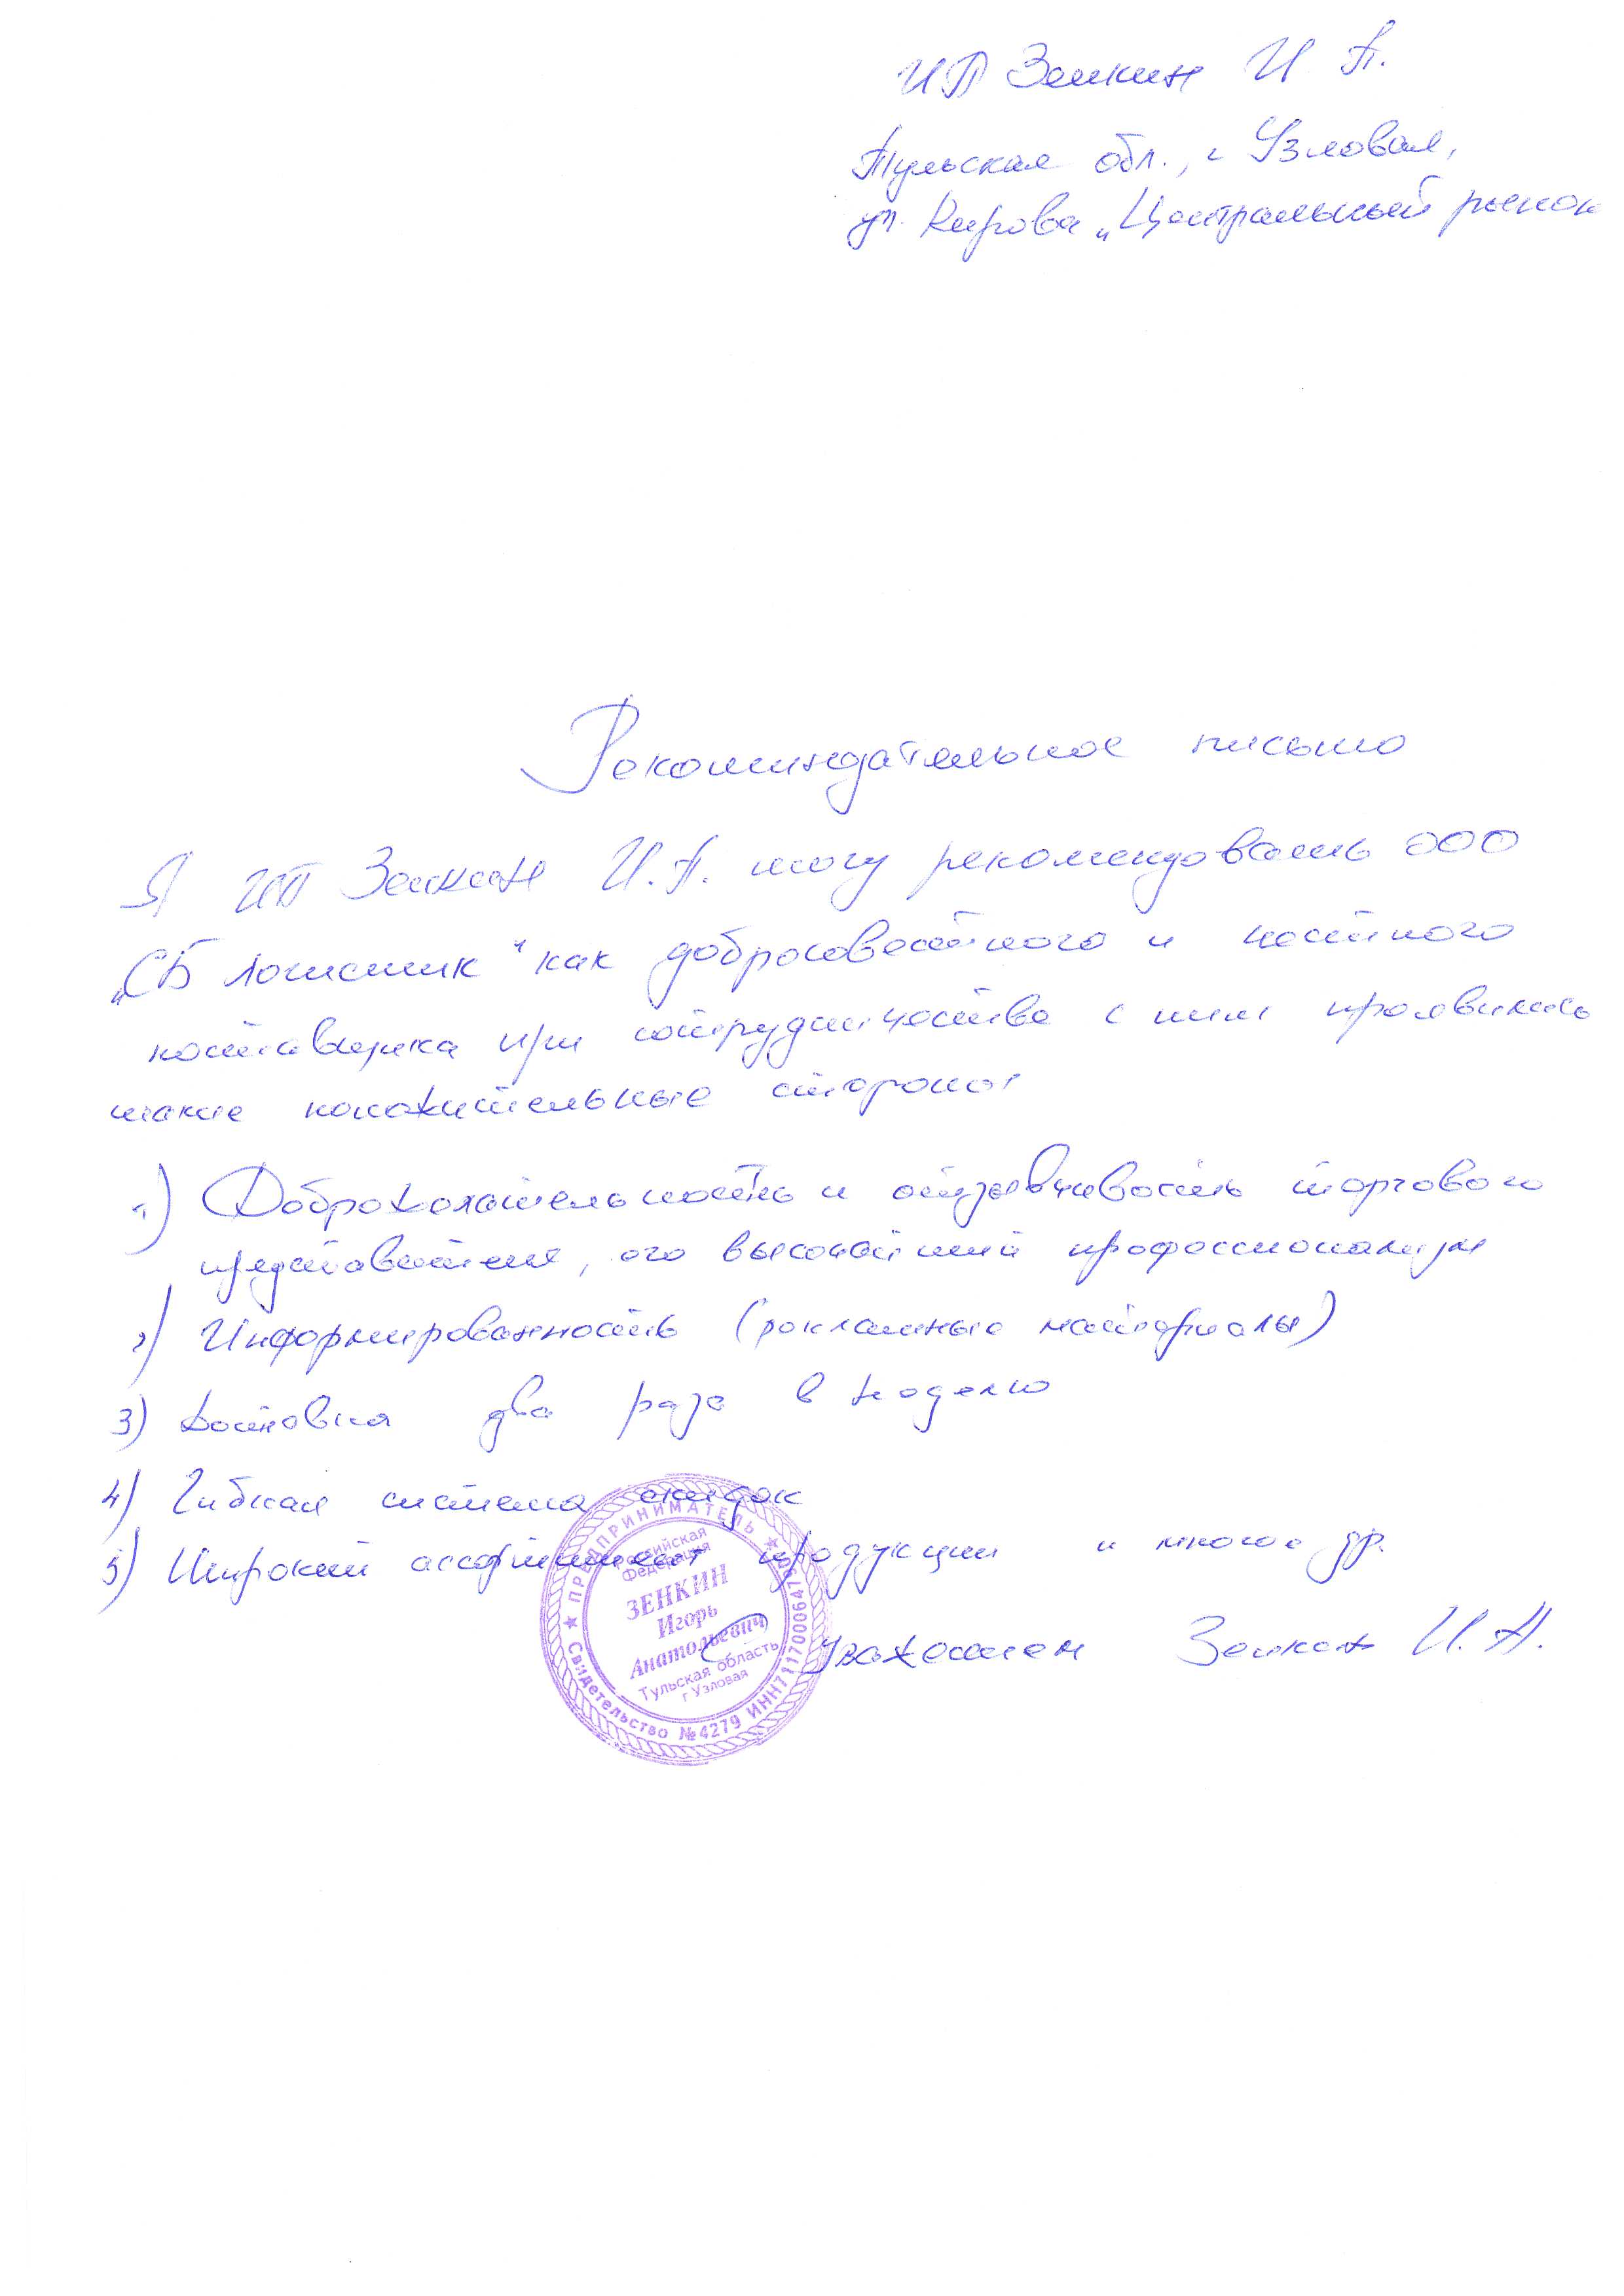 ИП Зенкин И. А.
Тульская обл., г Узловая,
ул. Кирова „Центральный рынок
Рекоминдательное письмо
Я ИП Зенкин И.А. могу рекомендовать ООО
„СБ Логистик" как добросовестного и честного
поставщика при сотрудничестве с ним проявились
такие положительные стороны
1) Доброжелательность и отзывчивость торгового
представителя, его высочайший профессионализм
2) Информированность (рекламные материалы)
3) Доставка два раза в неделю
4) Гибкая система скидок
5) Широкий ассортимент продукции и многое др.
С уважением Зенкин И. А.
★ ПРЕДПРИНИМАТЕЛЬ ★
Российская
Федерация
ЗЕНКИН
Игорь
Анатольевич
Тульская область
г Узловая
Свидетельство №4279 ИНН711700064790